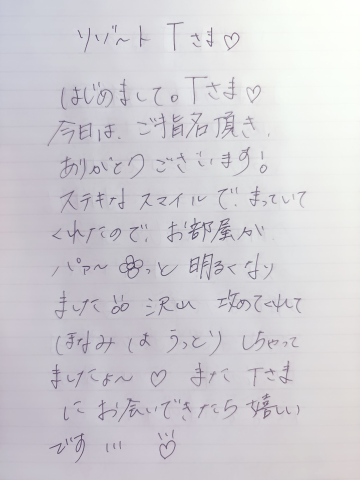 リゾート Tさま♡
はじめまして。Tさま♡
今日は、ご指名頂き、
ありがとうございます!
ステキな スマイルで、まっていて
くれたので、お部屋が
パァ〜っと 明るくなり
ました 沢山 攻めてくれて
ほなみは うっとり しちゃって
ましたょ〜 ♡ また Tさま
に お会いできたら嬉しい
です ♡